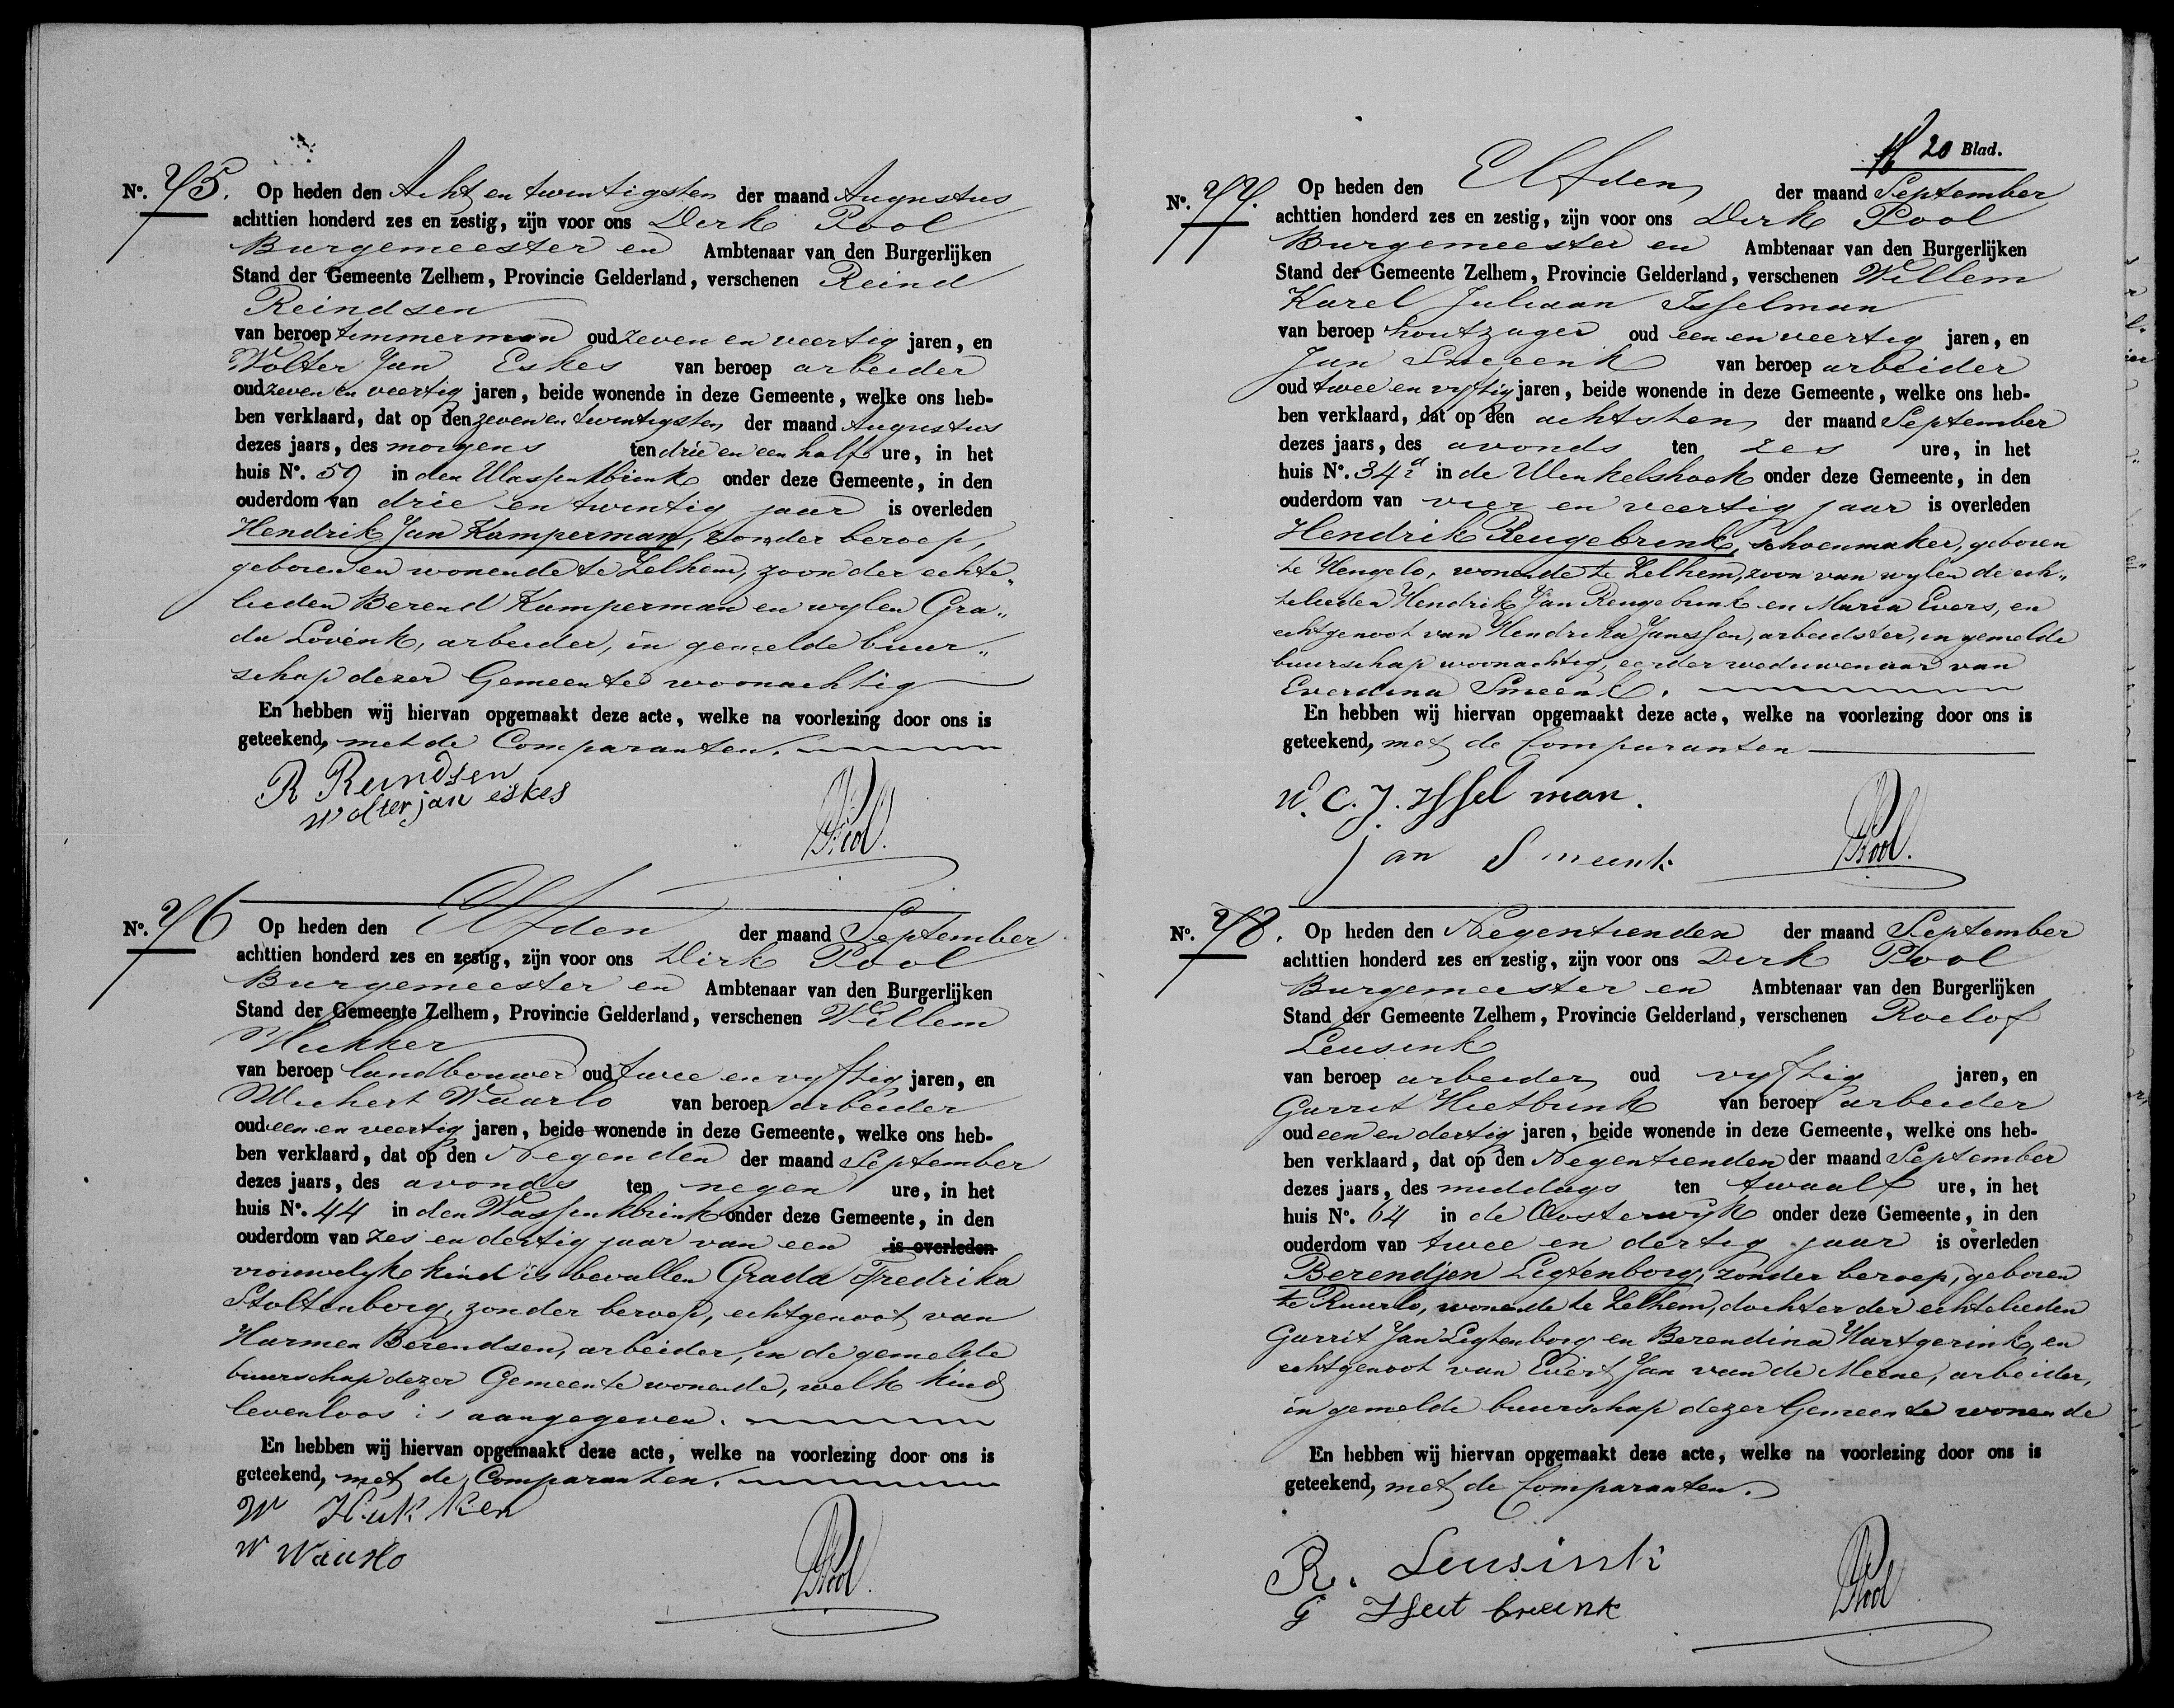 No. 75. Op heden den Acht en twintigsten der maand Augustus
achttien honderd zes en zestig, zijn voor ons Derk Pool
Burgemeester en Ambtenaar van den Burgerlijken
Stand der Gemeente Zelhem, Provincie Gelderland, verschenen Reind
Reindsen
van beroep timmerman oud zeven en veertig jaren, en
Wolter Jan Eskes van beroep arbeider
oud zeven en veertig jaren, beide wonende in deze Gemeente, welke ons heb-
ben verklaard, dat op den zeven en twintigsten der maand Augustus
dezes jaars, des morgens ten drie en een half ure, in het
huis No. 59 in den Wassenkbrink onder deze Gemeente, in den
ouderdom van drie en twintig jaar is overleden
Hendrik Jan Kamperman, zonder beroep,
geboren en wonende te Zelhem, zoon der echte„
lieden Berend Kamperman en wylen Gra„
da Lovink, arbeider, in gemelde buur„
schap dezer Gemeente woonachtig
En hebben wij hiervan opgemaakt deze acte, welke na voorlezing door ons is
geteekend, met de Comparanten.
R Reindsen
Wolter jan eskes
Pool.
No. 76 Op heden den Elfden der maand September
achttien honderd zes en zestig, zijn voor ons Dirk Pool
Burgemeester en Ambtenaar van den Burgerlijken
Stand der Gemeente Zelhem, Provincie Gelderland, verschenen Willem
Hukker
van beroep landbouwer oud twee en vyftig jaren, en
Wichert Waarlo van beroep arbeider
oud een en veertig jaren, beide wonende in deze Gemeente, welke ons heb-
ben verklaard, dat op den Negenden der maand September
dezes jaars, des avonds ten negen ure, in het
huis No. 44 in den Wassenkbrink onder deze Gemeente, in den
ouderdom van zes en dertig jaar van een is overleden
vrouwelyk kind is bevallen Grada Fredrika
Stoltenborg, zonder beroep, echtgenoot van
Harmen Berendsen, arbeider, in de gemelde
buurschap dezer Gemeente wonende, welk kind
levenloos is aangegeven.
En hebben wij hiervan opgemaakt deze acte, welke na voorlezing door ons is
geteekend, met de Comparanten.
W Hukker
W Waarlo
Pool.
20 Blad.
No. 77. Op heden den Elfden der maand September
achttien honderd zes en zestig, zijn voor ons Dirk Pool
Burgemeester en Ambtenaar van den Burgerlijken
Stand der Gemeente Zelhem, Provincie Gelderland, verschenen Willem
Karel Juliaan Isselman
van beroep houtzager oud een en veertig jaren, en
Jan Smeenk van beroep arbeider
oud twee en vyftig jaren, beide wonende in deze Gemeente, welke ons heb-
ben verklaard, dat op den achtsten der maand September
dezes jaars, des avonds ten zes ure, in het
huis No. 34 in de Winkelshoek onder deze Gemeente, in den
ouderdom van vier en veertig jaar is overleden
Hendrik Reugebrink, schoenmaker, geboren
te Hengelo, wonende te Zelhem, zoon van wylen de ech„
telieden Hendrik Jan Reugebrink en Maria Evers, en
echtgenoot van Hendrika Janssen, arbeidster, in gemelde
buurschap woonachtig, eerder weduwenaar van
Everdina Smeenk.
En hebben wij hiervan opgemaakt deze acte, welke na voorlezing door ons is
geteekend, met de Comparanten
W. C. J. Issel man.
jan Smeenk
Pool.
No. 78. Op heden den Negentienden der maand September
achttien honderd zes en zestig, zijn voor ons Derk Pool
Burgemeester en Ambtenaar van den Burgerlijken
Stand der Gemeente Zelhem, Provincie Gelderland, verschenen Roelof
Leusink
van beroep arbeider oud vyftig jaren, en
Garrit Hietbrink van beroep arbeider
oud een en dertig jaren, beide wonende in deze Gemeente, welke ons heb-
ben verklaard, dat op den Negentienden der maand September
dezes jaars, des middags ten twaalf ure, in het
huis No. 64 in de Oosterwyk onder deze Gemeente, in den
ouderdom van twee en dertig jaar is overleden
Berendjen Ligtenborg, zonder beroep, geboren
te Ruurlo, wonende te Zelhem, dochter der echtelieden
Garrit Jan Ligtenborg en Berendina Hartgerink, en
echtgenoot van Evert Jan van de Meene, arbeider,
in gemelde buurschap dezer Gemeente wonende
En hebben wij hiervan opgemaakt deze acte, welke na voorlezing door ons is
geteekend, met de Comparanten.
R. Leusink
G Heit brink
Pool